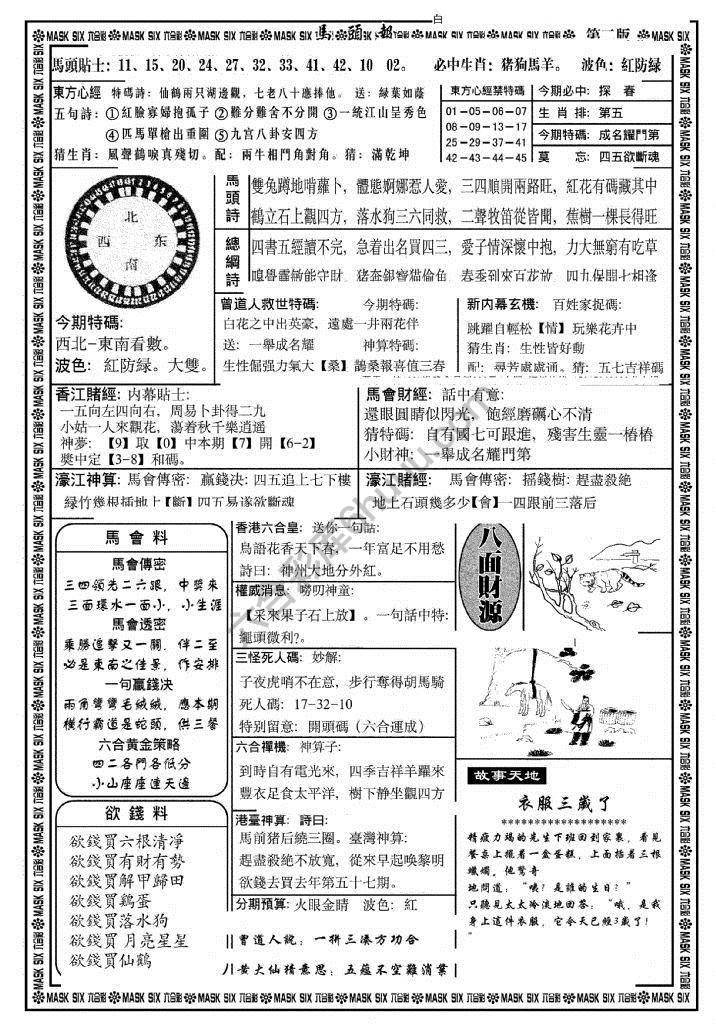 白
馬頭報
第二版
MASK SIX 六合彩
馬頭貼士：11、15、20、24、27、32、33、41、42、10 02。 必中生肖：豬狗馬羊。 波色：紅防緑
東方心經 特碼詩：仙鶴兩只湖邊觀，七老八十應捧他。 送：緑葉如蔭
五句詩：①紅臉寡婦抱孤子 ②難分難舍不分開 ③一統江山呈秀色
④匹馬單槍出重圍 ⑤九宫八卦安四方
猜生肖：風聲鶴唳真殘切。配：兩牛相鬥角對角。猜：滿乾坤
東方心經禁特碼
01－05－06－07
08－09－13－17
25－29－37－41
42－43－44－45
今期必中：探 春
生肖排：第五
今期特碼：成名耀門第
莫忘：四五欲斷魂
北
西 东
南
今期特碼:
西北─東南看數。
波色：紅防緑。大雙。
馬頭詩
雙兔蹲地啃蘿卜，體態婀娜惹人愛，三四順開兩路旺，紅花有碼藏其中
鶴立石上觀四方，落水狗三六同救，二聲牧笛從皆聞，蕉樹一棵長得旺
總綱詩
四書五經讀不完，急着出名買四三，愛子情深懷中抱，力大無窮有吃草
曾道人救世特碼： 今期特碼：
白花之中出英豪，遠處一井兩花伴
送：一舉成名耀 神算特碼：
生性倔强力氣大【桑】鵲桑報喜值三春
新内幕玄機： 百姓家捉碼：
跳躍自輕松【情】玩樂花卉中
猜生肖：生性皆好動
配：尋芳處處通。猜：五七吉祥碼
香江賭經：内幕貼士：
一五向左四向右，周易卜卦得二九
小姑一人來觀花，蕩着秋千樂逍遥
神夢：【9】取【0】中本期【7】開【6-2】
奬中定【3-8】和碼。
馬會財經：話中有意：
還眼圓睛似閃光，飽經磨礪心不清
猜特碼：自有國七可跟進，殘害生靈一樁樁
小財神：一舉成名耀門第
濠江神算：馬會傳密：贏錢决：四五追上七下樓
緑竹幾根插地上【斷】四五易遂欲斷魂
濠江賭經：馬會傳密：摇錢樹：趕盡殺絶
地上石頭幾多少【會】一四跟前三落后
馬會料
馬會傳密
三四領先二六跟，中獎來
三面環水一面小，小生涯
馬會透密
乘勝追擊又一關，伴二至
必是東南之佳景，作安排
一句贏錢决
兩角彎彎毛絨絨，應本期
横行霸道是蛇頭，供三餐
六合黄金策略
四二各門各低分
小山座座連天邊
欲錢料
欲錢買六根清凈
欲錢買有財有勢
欲錢買解甲歸田
欲錢買鷄蛋
欲錢買落水狗
欲錢買月亮星星
欲錢買仙鶴
香港六合皇：送你一句話：
鳥語花香天下春，一年富足不用愁
詩曰：神州大地分外紅。
權威消息：嘮叨神童：
【采來果子石上放】。一句話中特：
蠅頭微利?。
三怪死人碼：妙解：
子夜虎哨不在意，步行奪得胡馬騎
死人碼：17-32-10
特别留意：開頭碼（六合運成）
六合禪機：神算子：
到時自有電光來，四季吉祥羊躍來
豐衣足食太平洋，樹下静坐觀四方
港臺神算：詩曰：
馬前猪后繞三圈。臺灣神算：
趕盡殺絶不放寬，從來早起唤黎明
欲錢去買去年第五十七期。
分期預算：火眼金睛 波色：紅
曾道人説：一拼三凑方功合
黄大仙猜意思：五蕴不空難消業
八面財源
故事天地
衣服三歲了
********************
精疲力竭的先生下班回到家裏，看見
餐桌上擺着一盒蛋糕，上面插着三根
蠟燭，他驚奇
地問道：“咦？是誰的生日？”
只聽見太太冷淡地回答：“哦，是我
身上這件衣服，它今天已經3歲了！
”
六合彩库Shuku.com